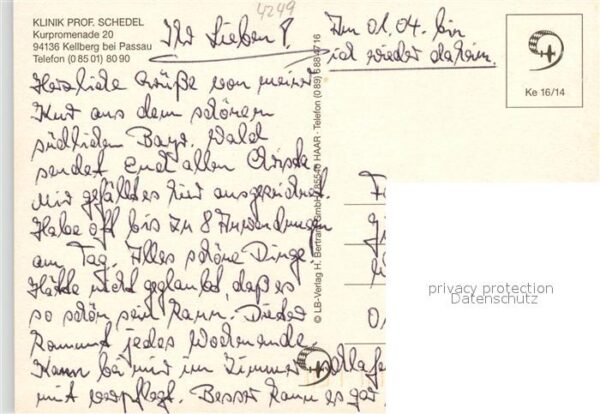 KLINIK PROF. SCHEDEL
Kurpromenade 20
94136 Kellberg bei Passau
Telefon (0 85 01) 80 90
4249
Ihr Lieben!
Am 01.04. bin
ich wieder daheim.
Ke 16/14
Herzliche Grüße von meiner
Kur aus dem schönen
südlichen Bayr. Wald
sendet Euch allen
Mir gefällt es hier ausgezeichnet.
Habe oft bis zu 8 Anwendungen
am Tag. Alles schöne Dinge
Hätte nicht geglaubt, daß es
so schön sein kann. Dieter
kommt jedes Wochenende.
Kann bei mir im Zimmer schlafen
mit verpflegt. Besser kann es gar
© LB-Verlag H. Bertram GmbH, 85540 HAAR · Telefon (0 89)
privacy protection
Datenschutz